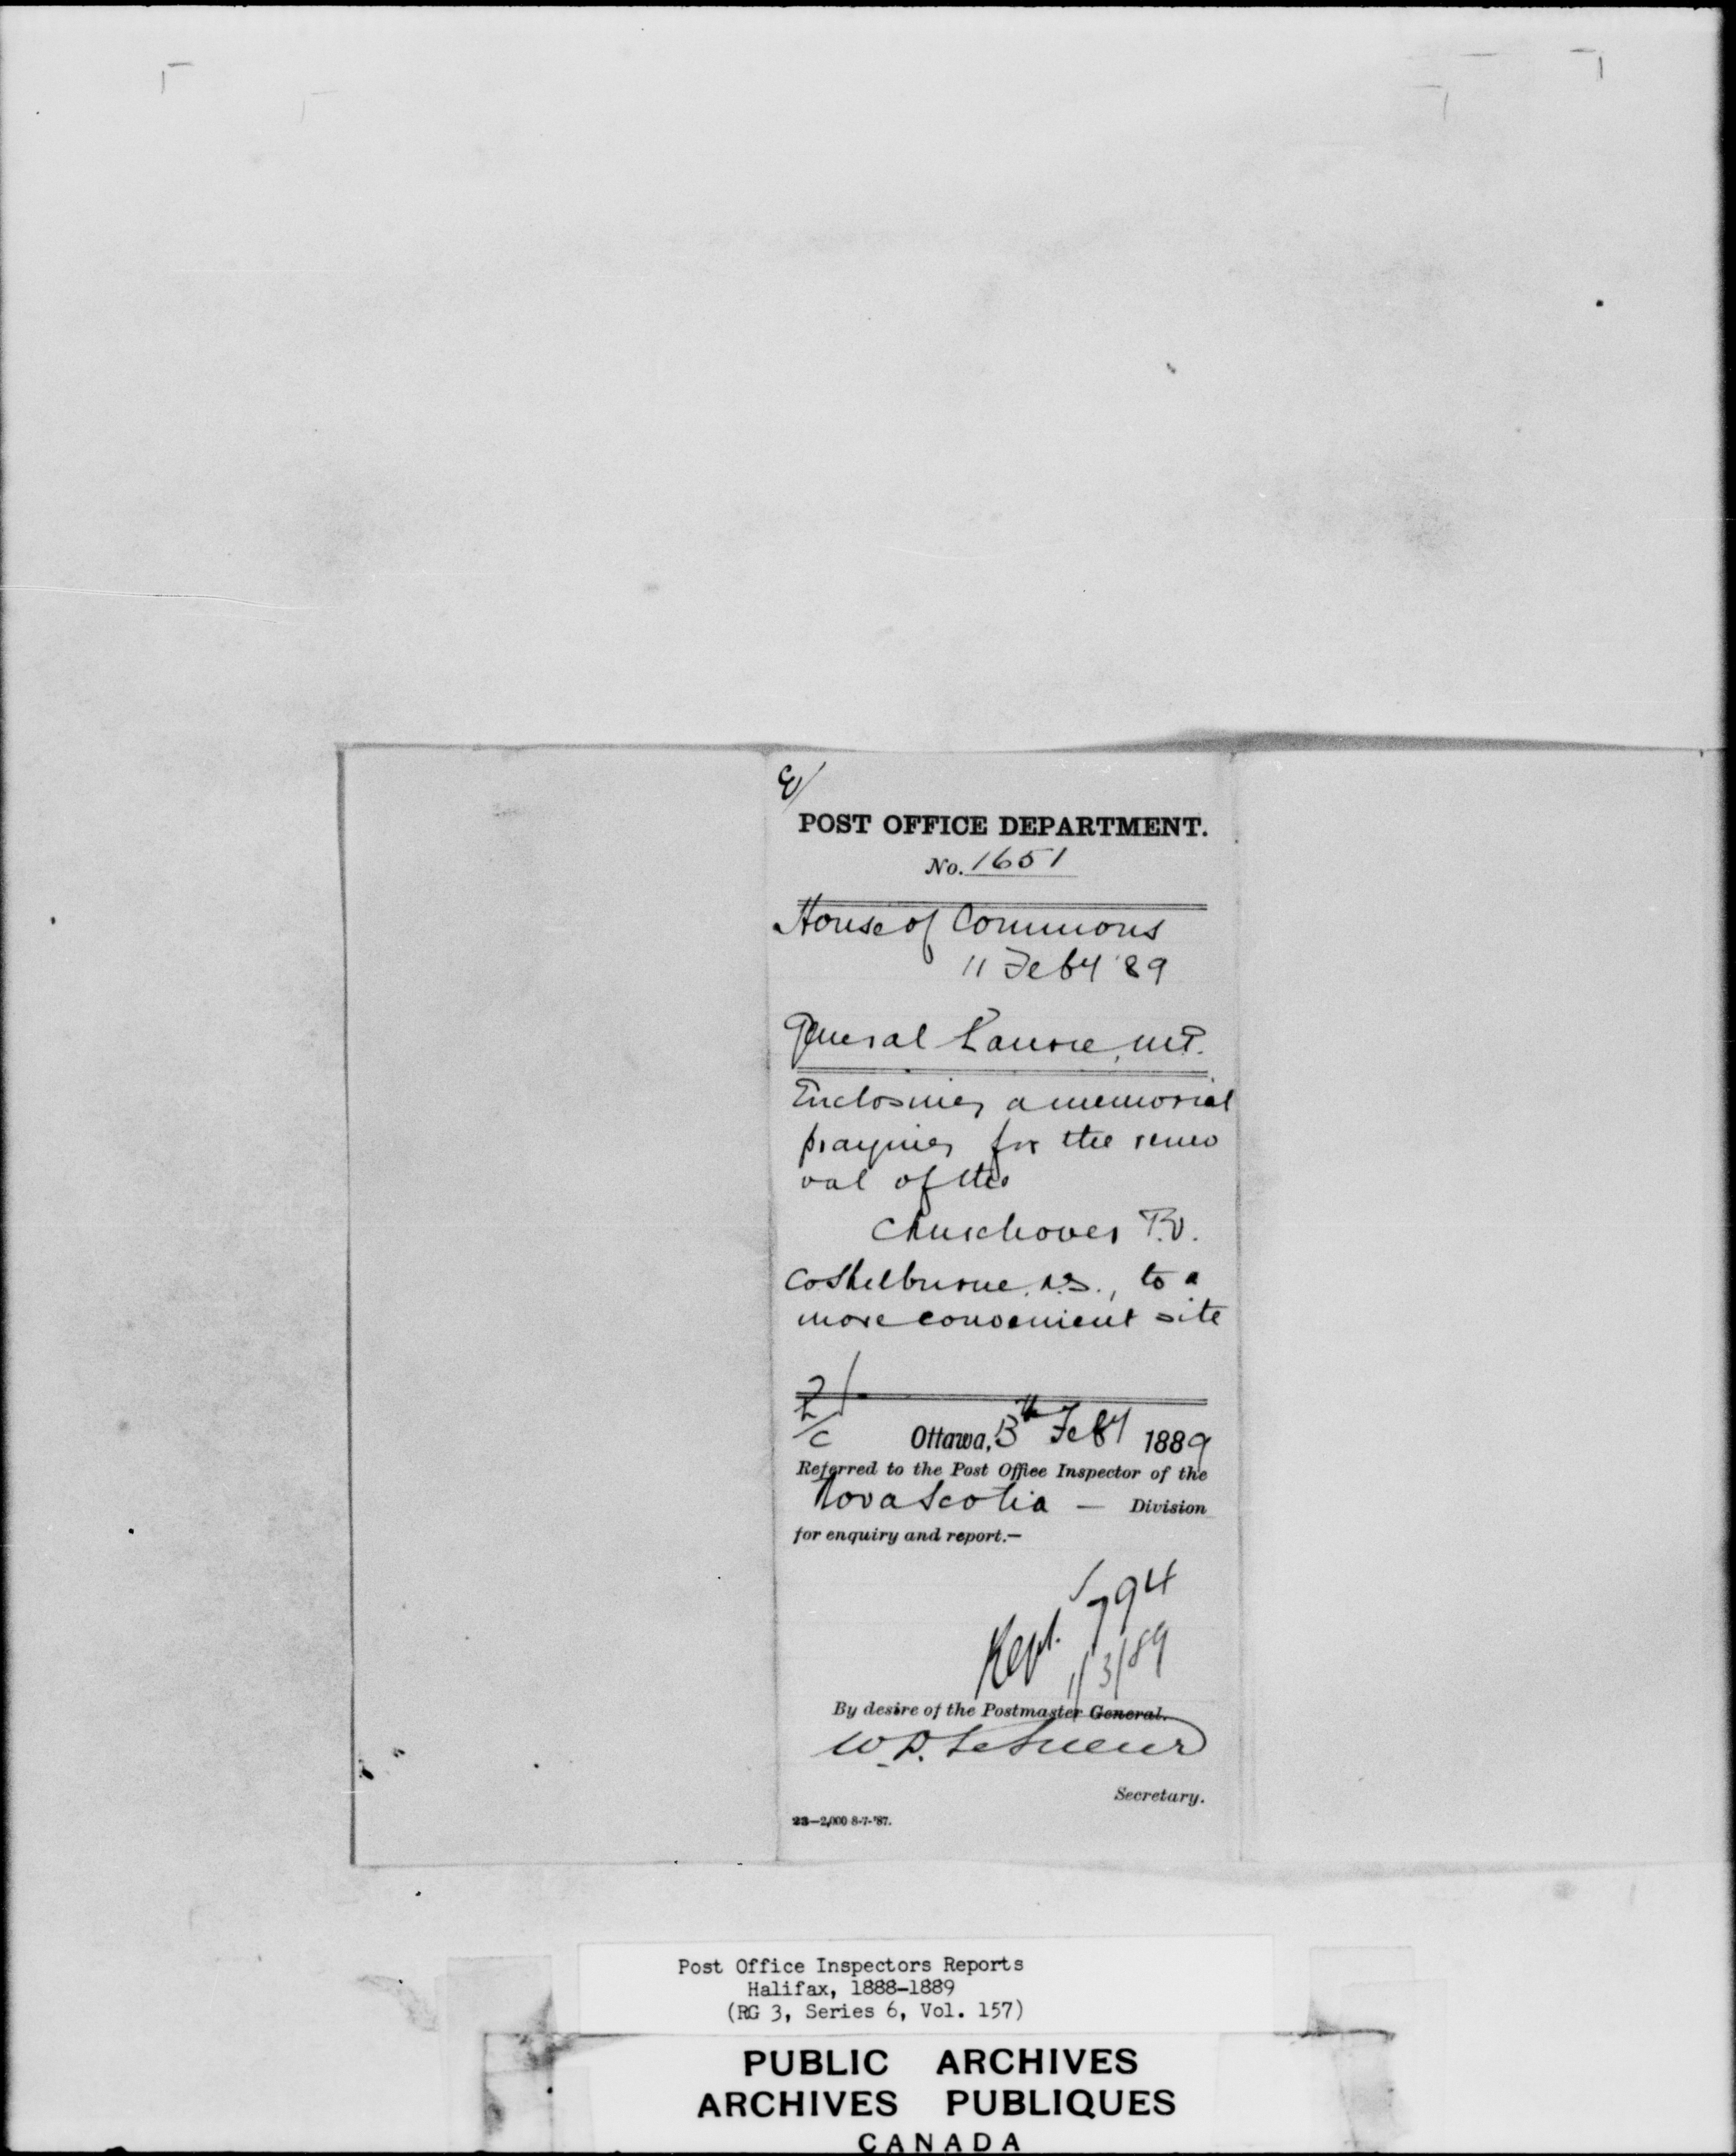 POST OFFICE DEPARTMENT.
No. 1651
House of Commons
11 Feby '89
General Laurie, M.P.
Enclosing a memorial
praying for the remo
val of the
Churchover P.O.
Co Shelburne, N.S., to a
more convenient site
Ottawa, 13th Feby 1889
Referred to the Post Office Inspector of the
Nova Scotia — Division
for enquiry and report.—
794
Rept. 1/3/89
By desire of the Postmaster General.
W.D. LeSueur
Secretary.
23—2,000-8-7-'87.
Post Office Inspectors Reports
Halifax, 1888-1889
(RG 3, Series 6, Vol. 157)
PUBLIC ARCHIVES
ARCHIVES PUBLIQUES
CANADA